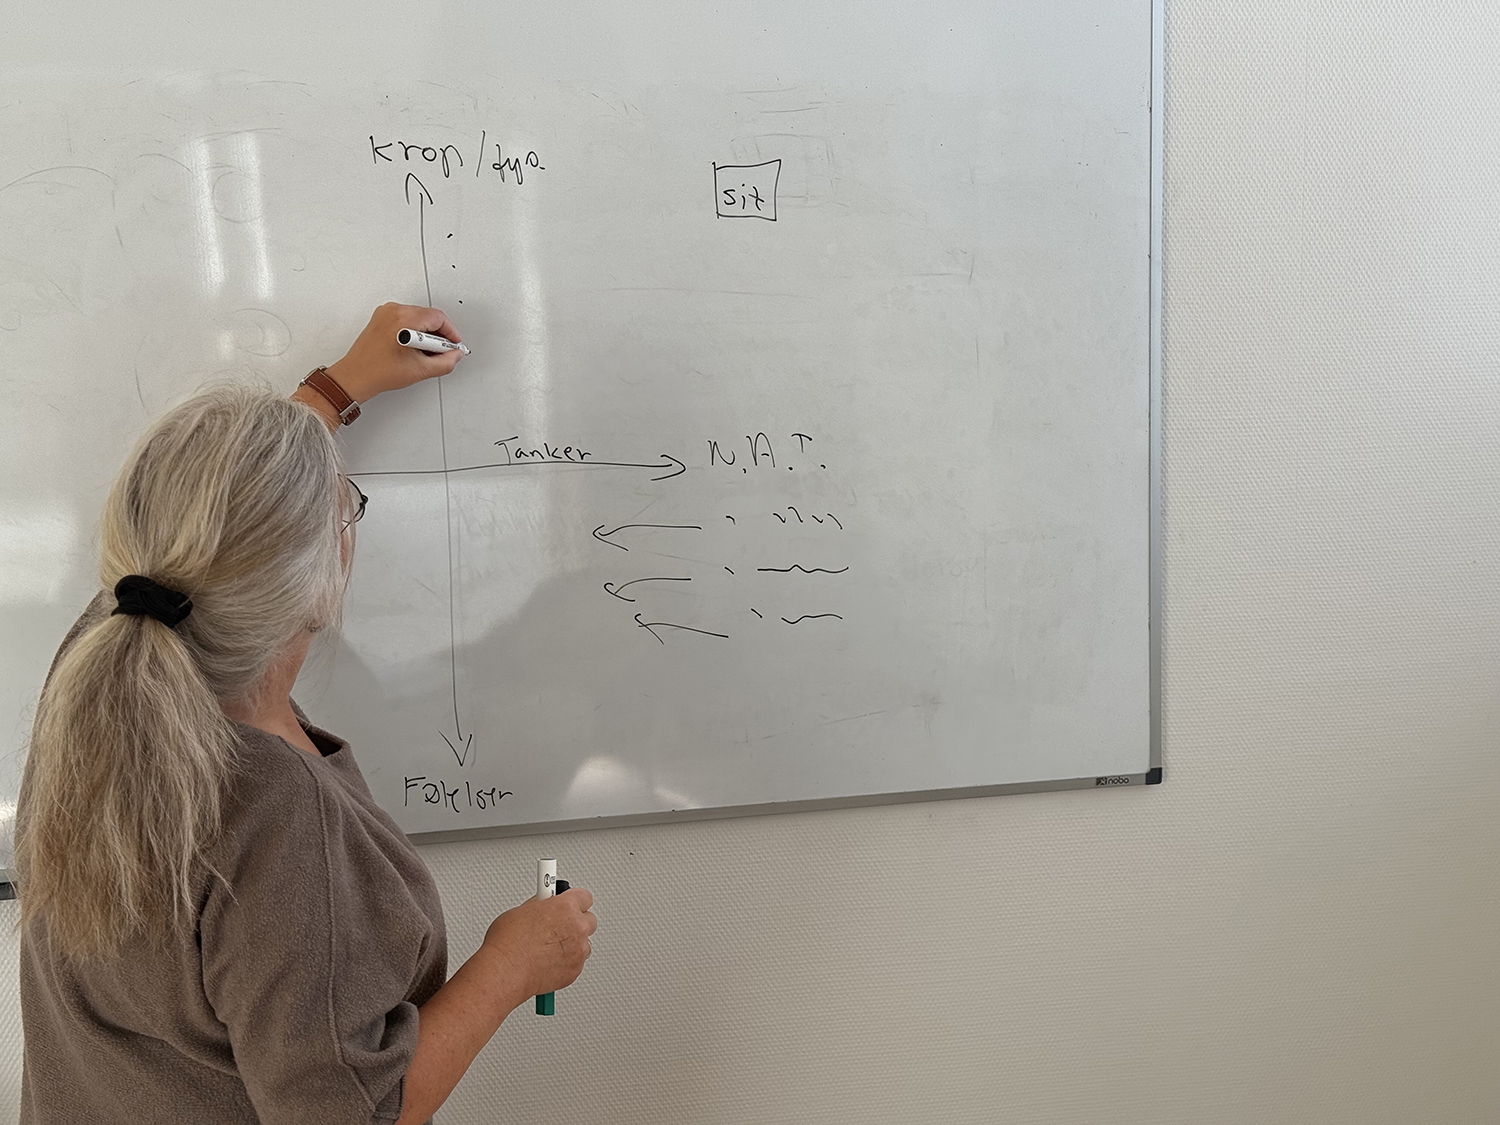 Krop / fys.
sit
Tanker
N.A.T.
Følelser
nobo